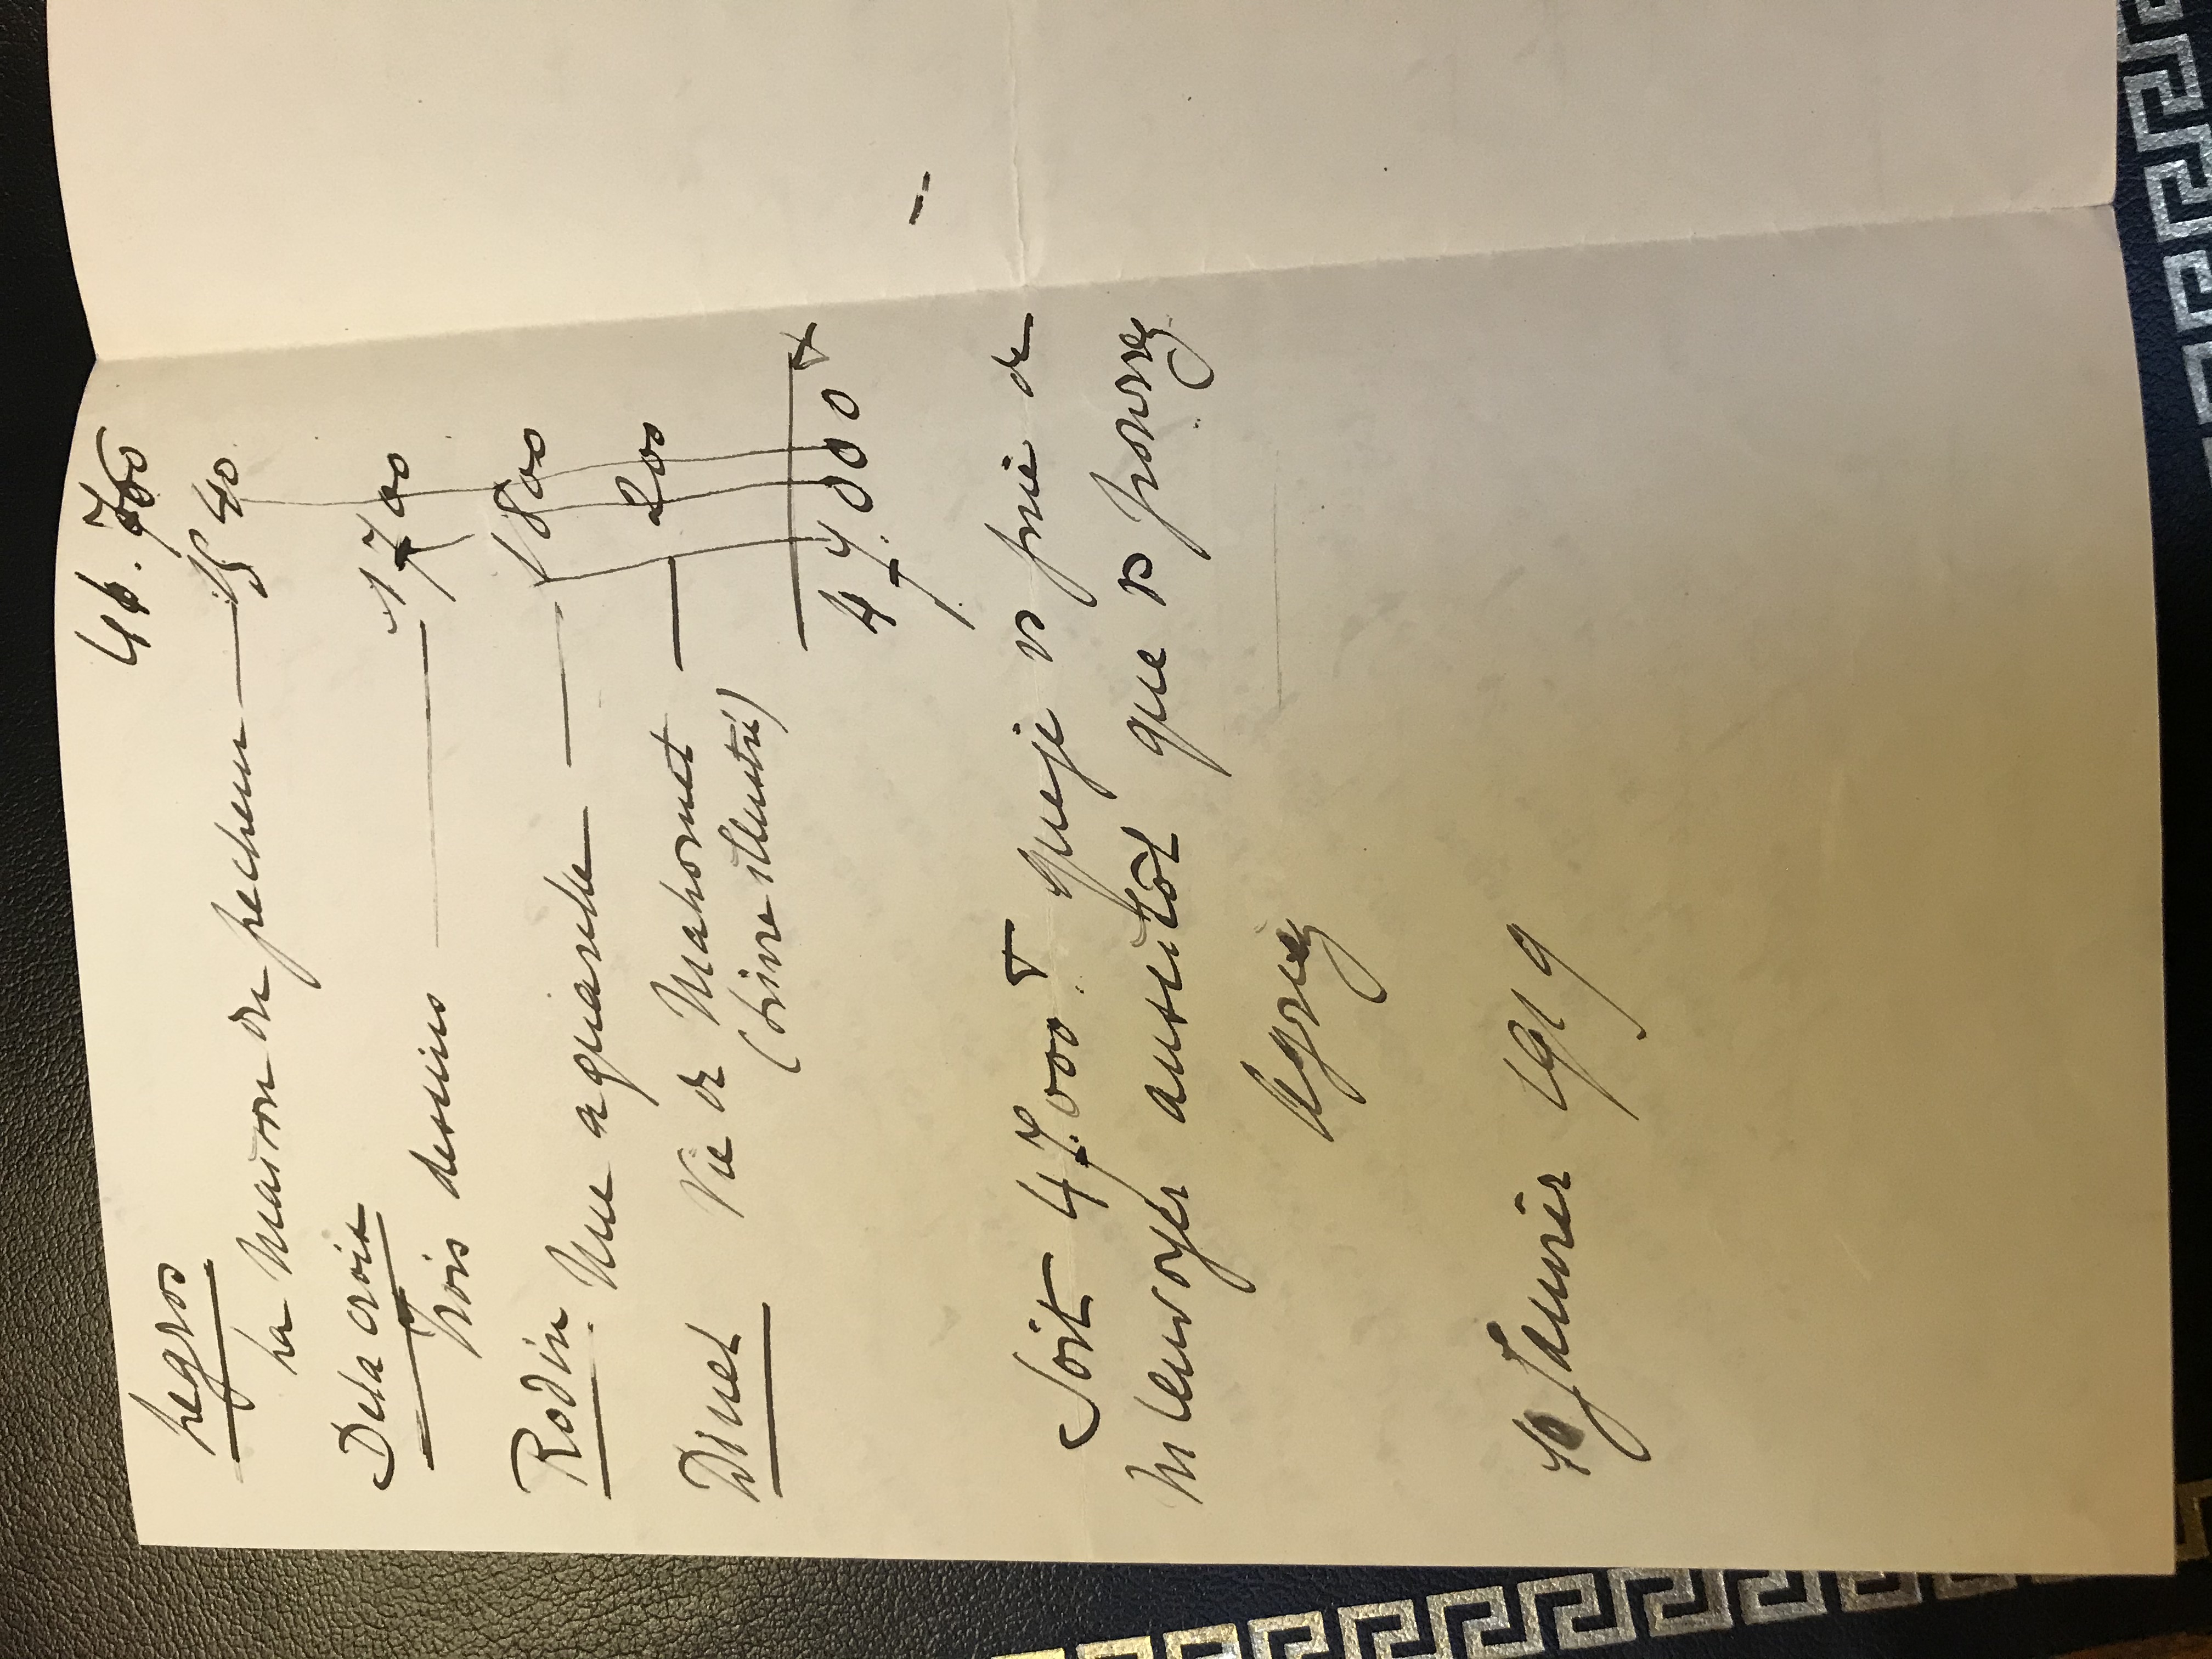 Legros
La Maison du pecheur — 1540
Delacroix
Trois dessins — 1700
Rodin Une aquarelle — 1800
Dinet Vie de Mahomet — 200
(Livre illustré)
47.000
Soit 47.000 que je vs prie de
m'envoyer aussitôt que vs pourrez
Janvier 1919